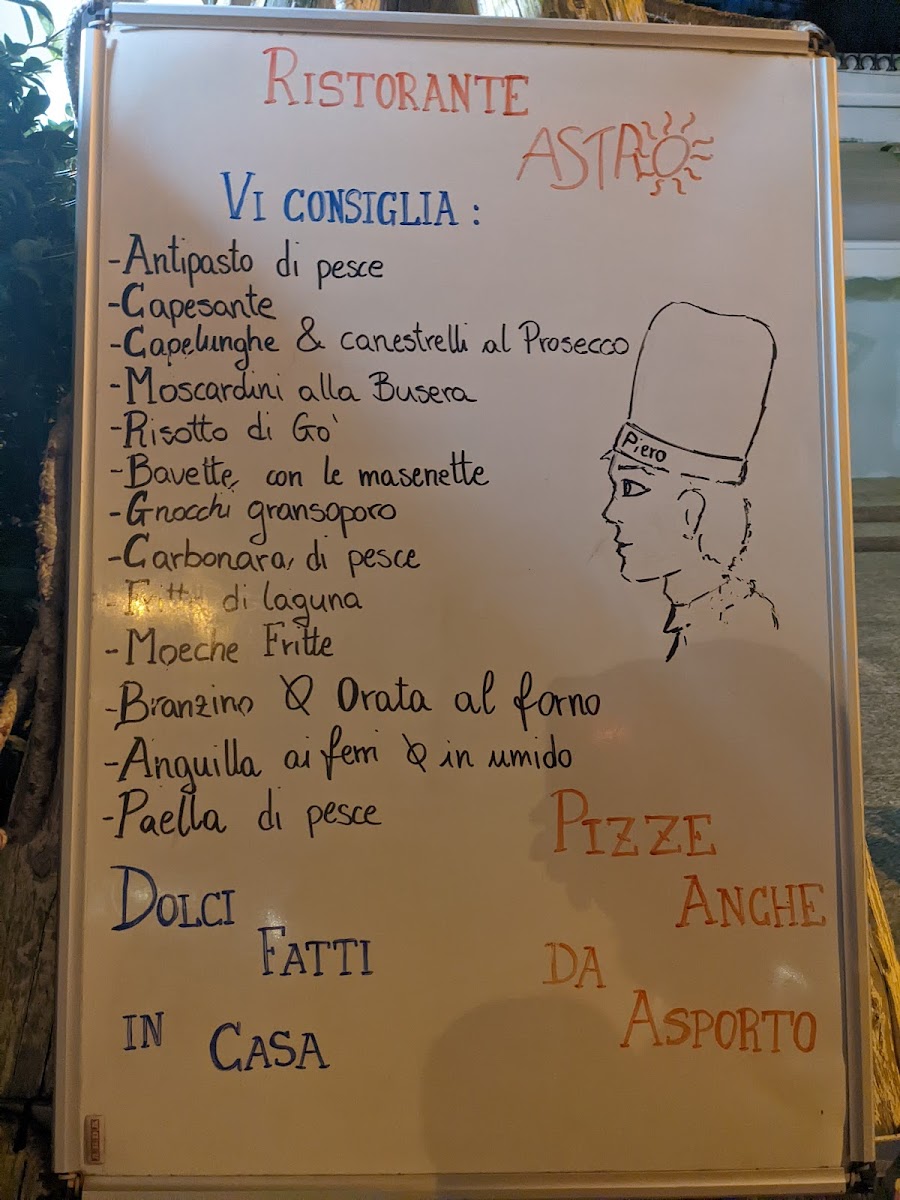 RISTORANTE
ASTRO
VI CONSIGLIA:
-Antipasto di pesce
-Capesante
-Capelunghe & canestrelli al Prosecco
-Moscardini alla Busera
-Risotto di Go'
-Bavette con le masenette
-Gnocchi gransoporo
-Carbonara di pesce
-Fritto di laguna
-Moeche Fritte
-Branzino O Orata al forno
-Anguilla ai ferri o in umido
-Paella di pesce
Piero
DOLCI
FATTI
IN CASA
PIZZE
ANCHE
DA
ASPORTO